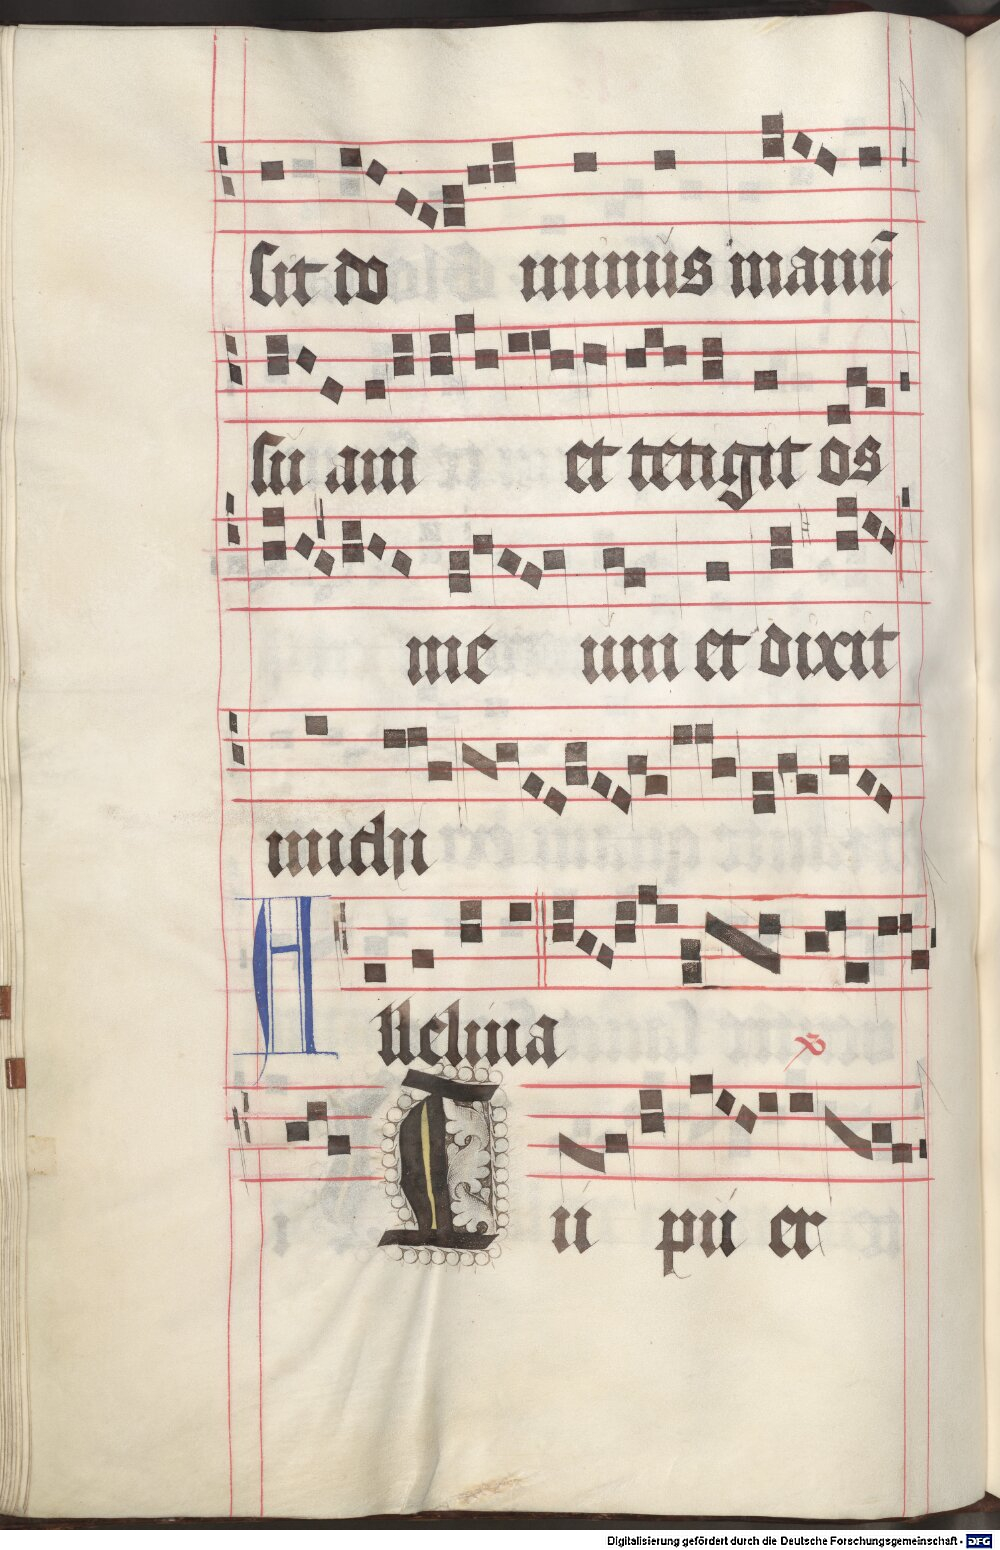 sit do minus manū
su am et tetigit os
me um et dixit
michi
A lleluia
T u pu er
Digitalisierung gefördert durch die Deutsche Forschungsgemeinschaft - DFG